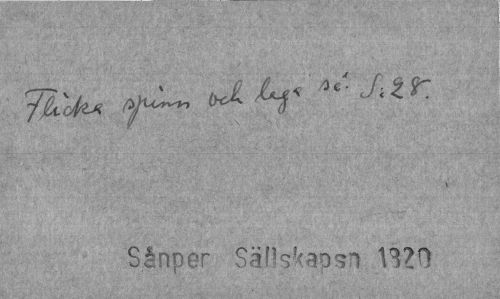 Flicka spinn och laga så. S: 28.
Sånper Sällskapsn 1820